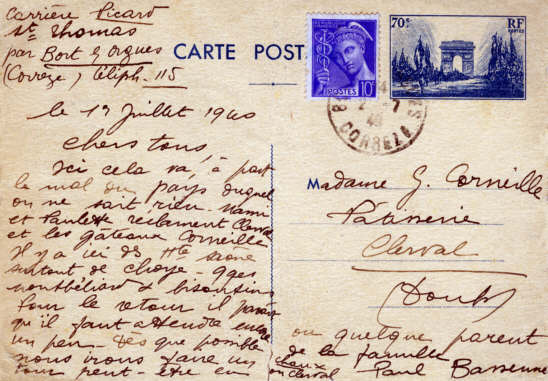 Carrière Picard
St Thomas
par Bort les Orgues
(Corrèze) Téléph. 115
CARTE POST
POSTES 10c
70c
RF
POSTES
CORREZE
le 17 Juillet 1940
Chers tous,
Ici cela va, à part
le mal du pays duquel
on ne sait rien. Nani
et Paulette réclament Clerval
et les gâteaux Corneille
Il y a ici des Hte Saône
surtout de Choye - qques
montbéliard & bisontins
Pour le retour il paraît
qu'il faut attendre encore
un peu. Dès que possible
nous irons faire un
tour peut-être en
Madame G. Corneille
Pâtisserie
Clerval
(Doubs)
ou quelque parent
de la famille
ou Clerval Paul Bassenne